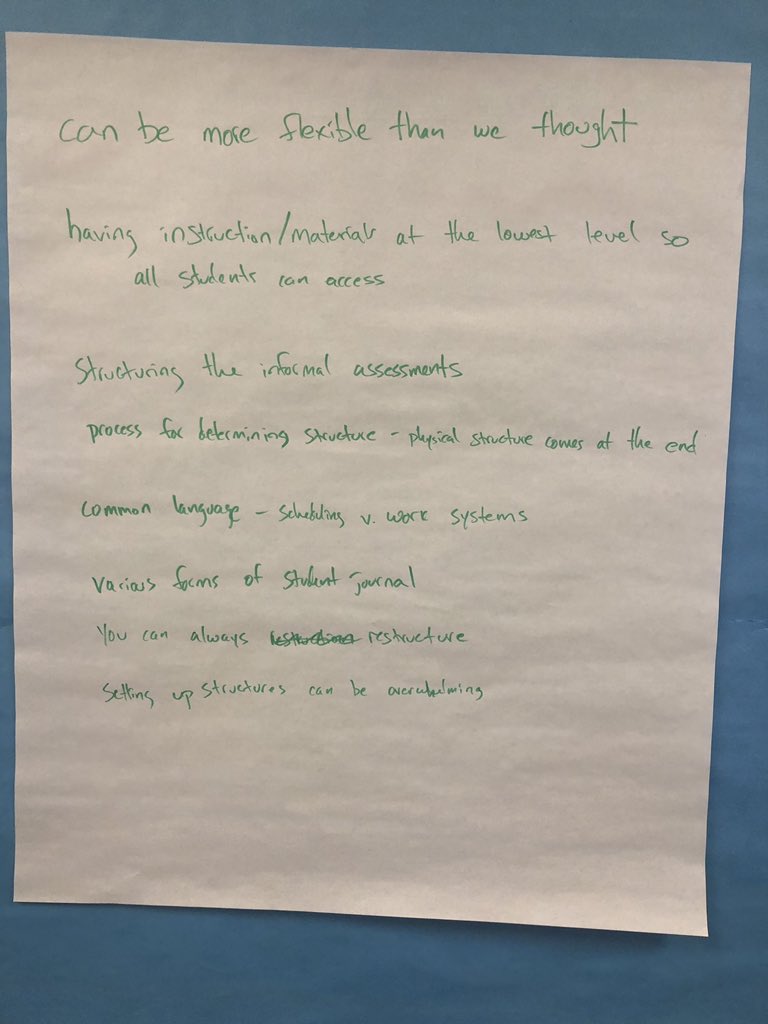 can be more flexible than we thought
having instruction/materials at the lowest level so
all students can access
Structuring the informal assessments
process for determining structure - physical structure comes at the end
common language - scheduling v. work systems
various forms of student journal
You can always restructure
Setting up structures can be overwhelming